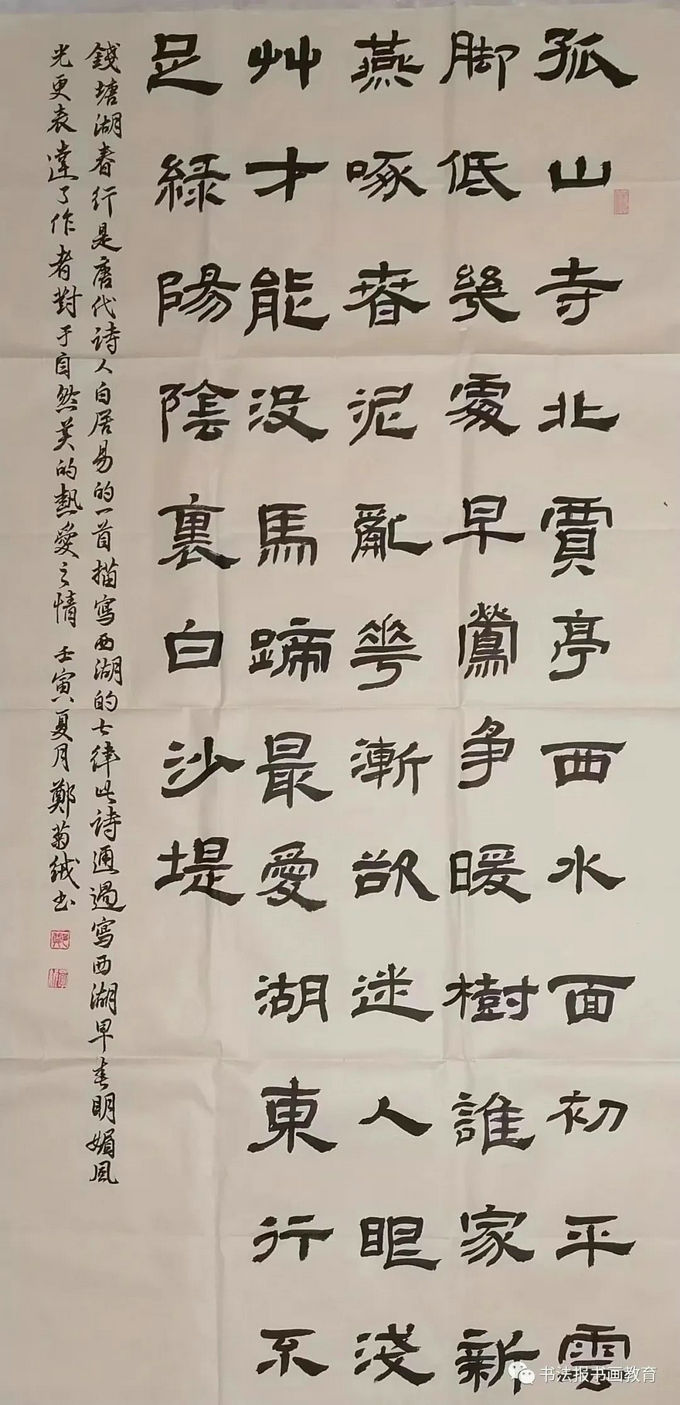 孤山寺北賈亭西水面初平雲
脚低幾處早鶯争暖樹誰家新
燕啄春泥亂華漸欲迷人眼淺
艸才能没馬蹄最愛湖東行不
足綠陽陰裏白沙堤
錢塘湖春行是唐代詩人白居易的一首描寫西湖的七律此詩通過寫西湖早春明媚風
光更表達了作者對于自然美的熱愛之情 壬寅夏月鄭菊绒书
书法报书画教育